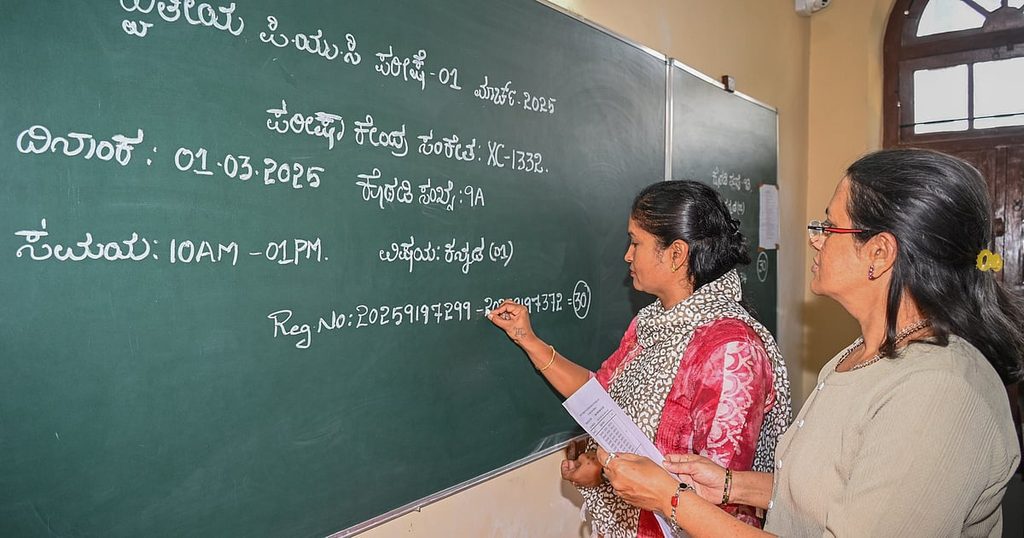 ದ್ವಿತೀಯ ಪಿ.ಯು.ಸಿ ಪರೀಕ್ಷೆ-01 ಮಾರ್ಚ್.2025
ಪರೀಕ್ಷಾ ಕೇಂದ್ರ ಸಂಕೇತ: XC-1332.
ದಿನಾಂಕ: 01.03.2025
ಕೊಠಡಿ ಸಂಖ್ಯೆ: 9A
ಸಮಯ: 10AM-01PM.
ವಿಷಯ: ಕನ್ನಡ (01)
Reg No: 20259197299 - 20259197372 = 30